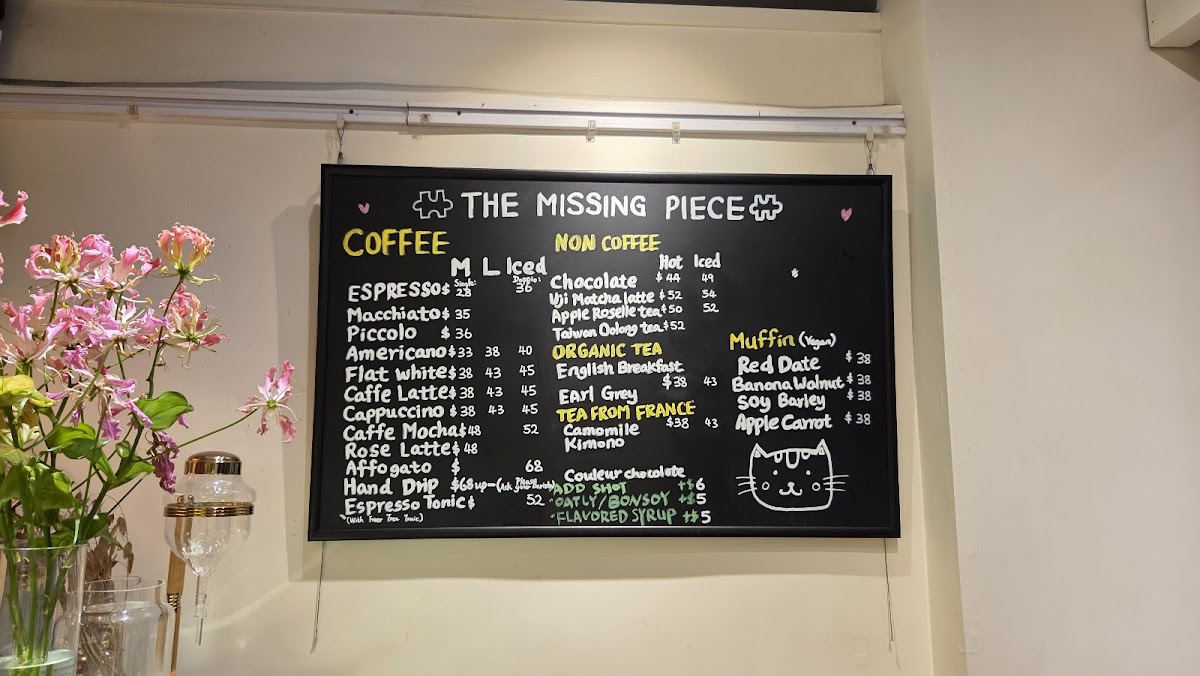 THE MISSING PIECE
COFFEE
M L Iced
ESPRESSO $ Single: 28 Double: 36
Macchiato $ 35
Piccolo $ 36
Americano $ 33 38 40
Flat white $ 38 43 45
Caffe Latte $ 38 43 45
Cappuccino $ 38 43 45
Caffe Mocha $ 48 52
Rose Latte $ 48
Affogato $ 68
Hand Drip $ 68 up-(Ask your barista) Please
Espresso Tonic $ 52
NON COFFEE
Hot Iced
Chocolate $ 44 49
Uji Matcha latte $ 52 54
Apple Roselle tea $ 50 52
Taiwan Oolong tea $ 52
ORGANIC TEA
English Breakfast
$ 38 43
Earl Grey
TEA FROM FRANCE
Camomile $38 43
Kimono
Couleur chocolate
ADD SHOT +$6
·OATLY/BONSOY +$5
·FLAVORED SYRUP +$5
Muffin (Vegan)
Red Date $ 38
Banana Walnut $ 38
Soy Barley $ 38
Apple Carrot $ 38